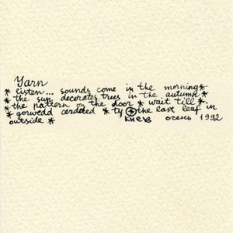 Yarn
* listen... sounds come in the morning *
* the sun decorates trees in the autumn *
* the pattern the door * wait till *
* the last leaf in
outside * осень 1992